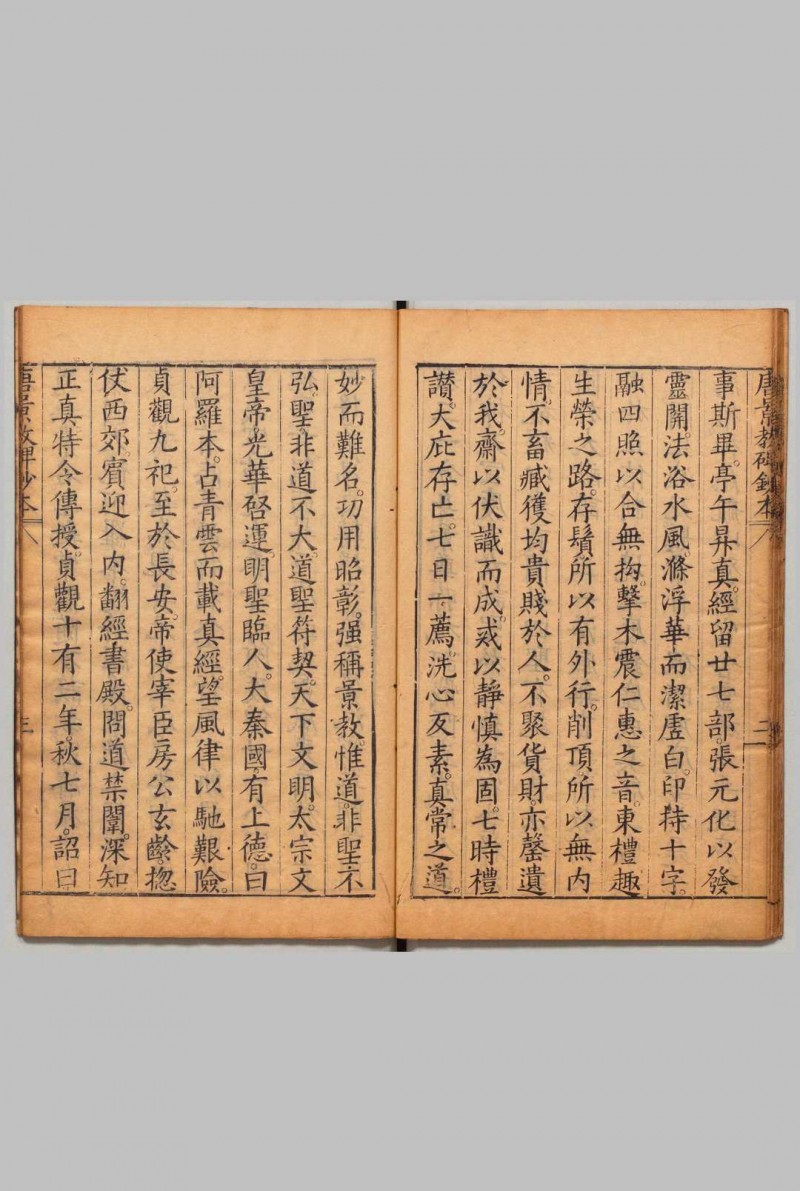 唐景教碑鈔本
二
事斯畢。亭午昇真。經留廿七部。張元化以發
靈關。法浴水風。滌浮華而潔虛白。印持十字。
融四照以合無拘。擊木震仁惠之音。東禮趣
生榮之路。存鬚所以有外行。削頂所以無內
情。不畜臧獲。均貴賤於人。不聚貨財。亦罄遺
於我。齋以伏識而成。戒以靜慎為固。七時禮
讚。大庇存亡。七日一薦。洗心反素。真常之道。
妙而難名。功用昭彰。强稱景教。惟道。非聖不
弘。聖。非道不大。道聖符契。天下文明。太宗文
皇帝。光華啓運。明聖臨人。大秦國有上德。曰
阿羅本。占青雲而載真經。望風律以馳艱險。
貞觀九祀。至於長安。帝使宰臣房公玄齡。揔
仗西郊。賓迎入內。翻經書殿。問道禁闈。深知
正真。特令傳授。貞觀十有二年秋七月。詔曰
唐景教碑鈔本
三